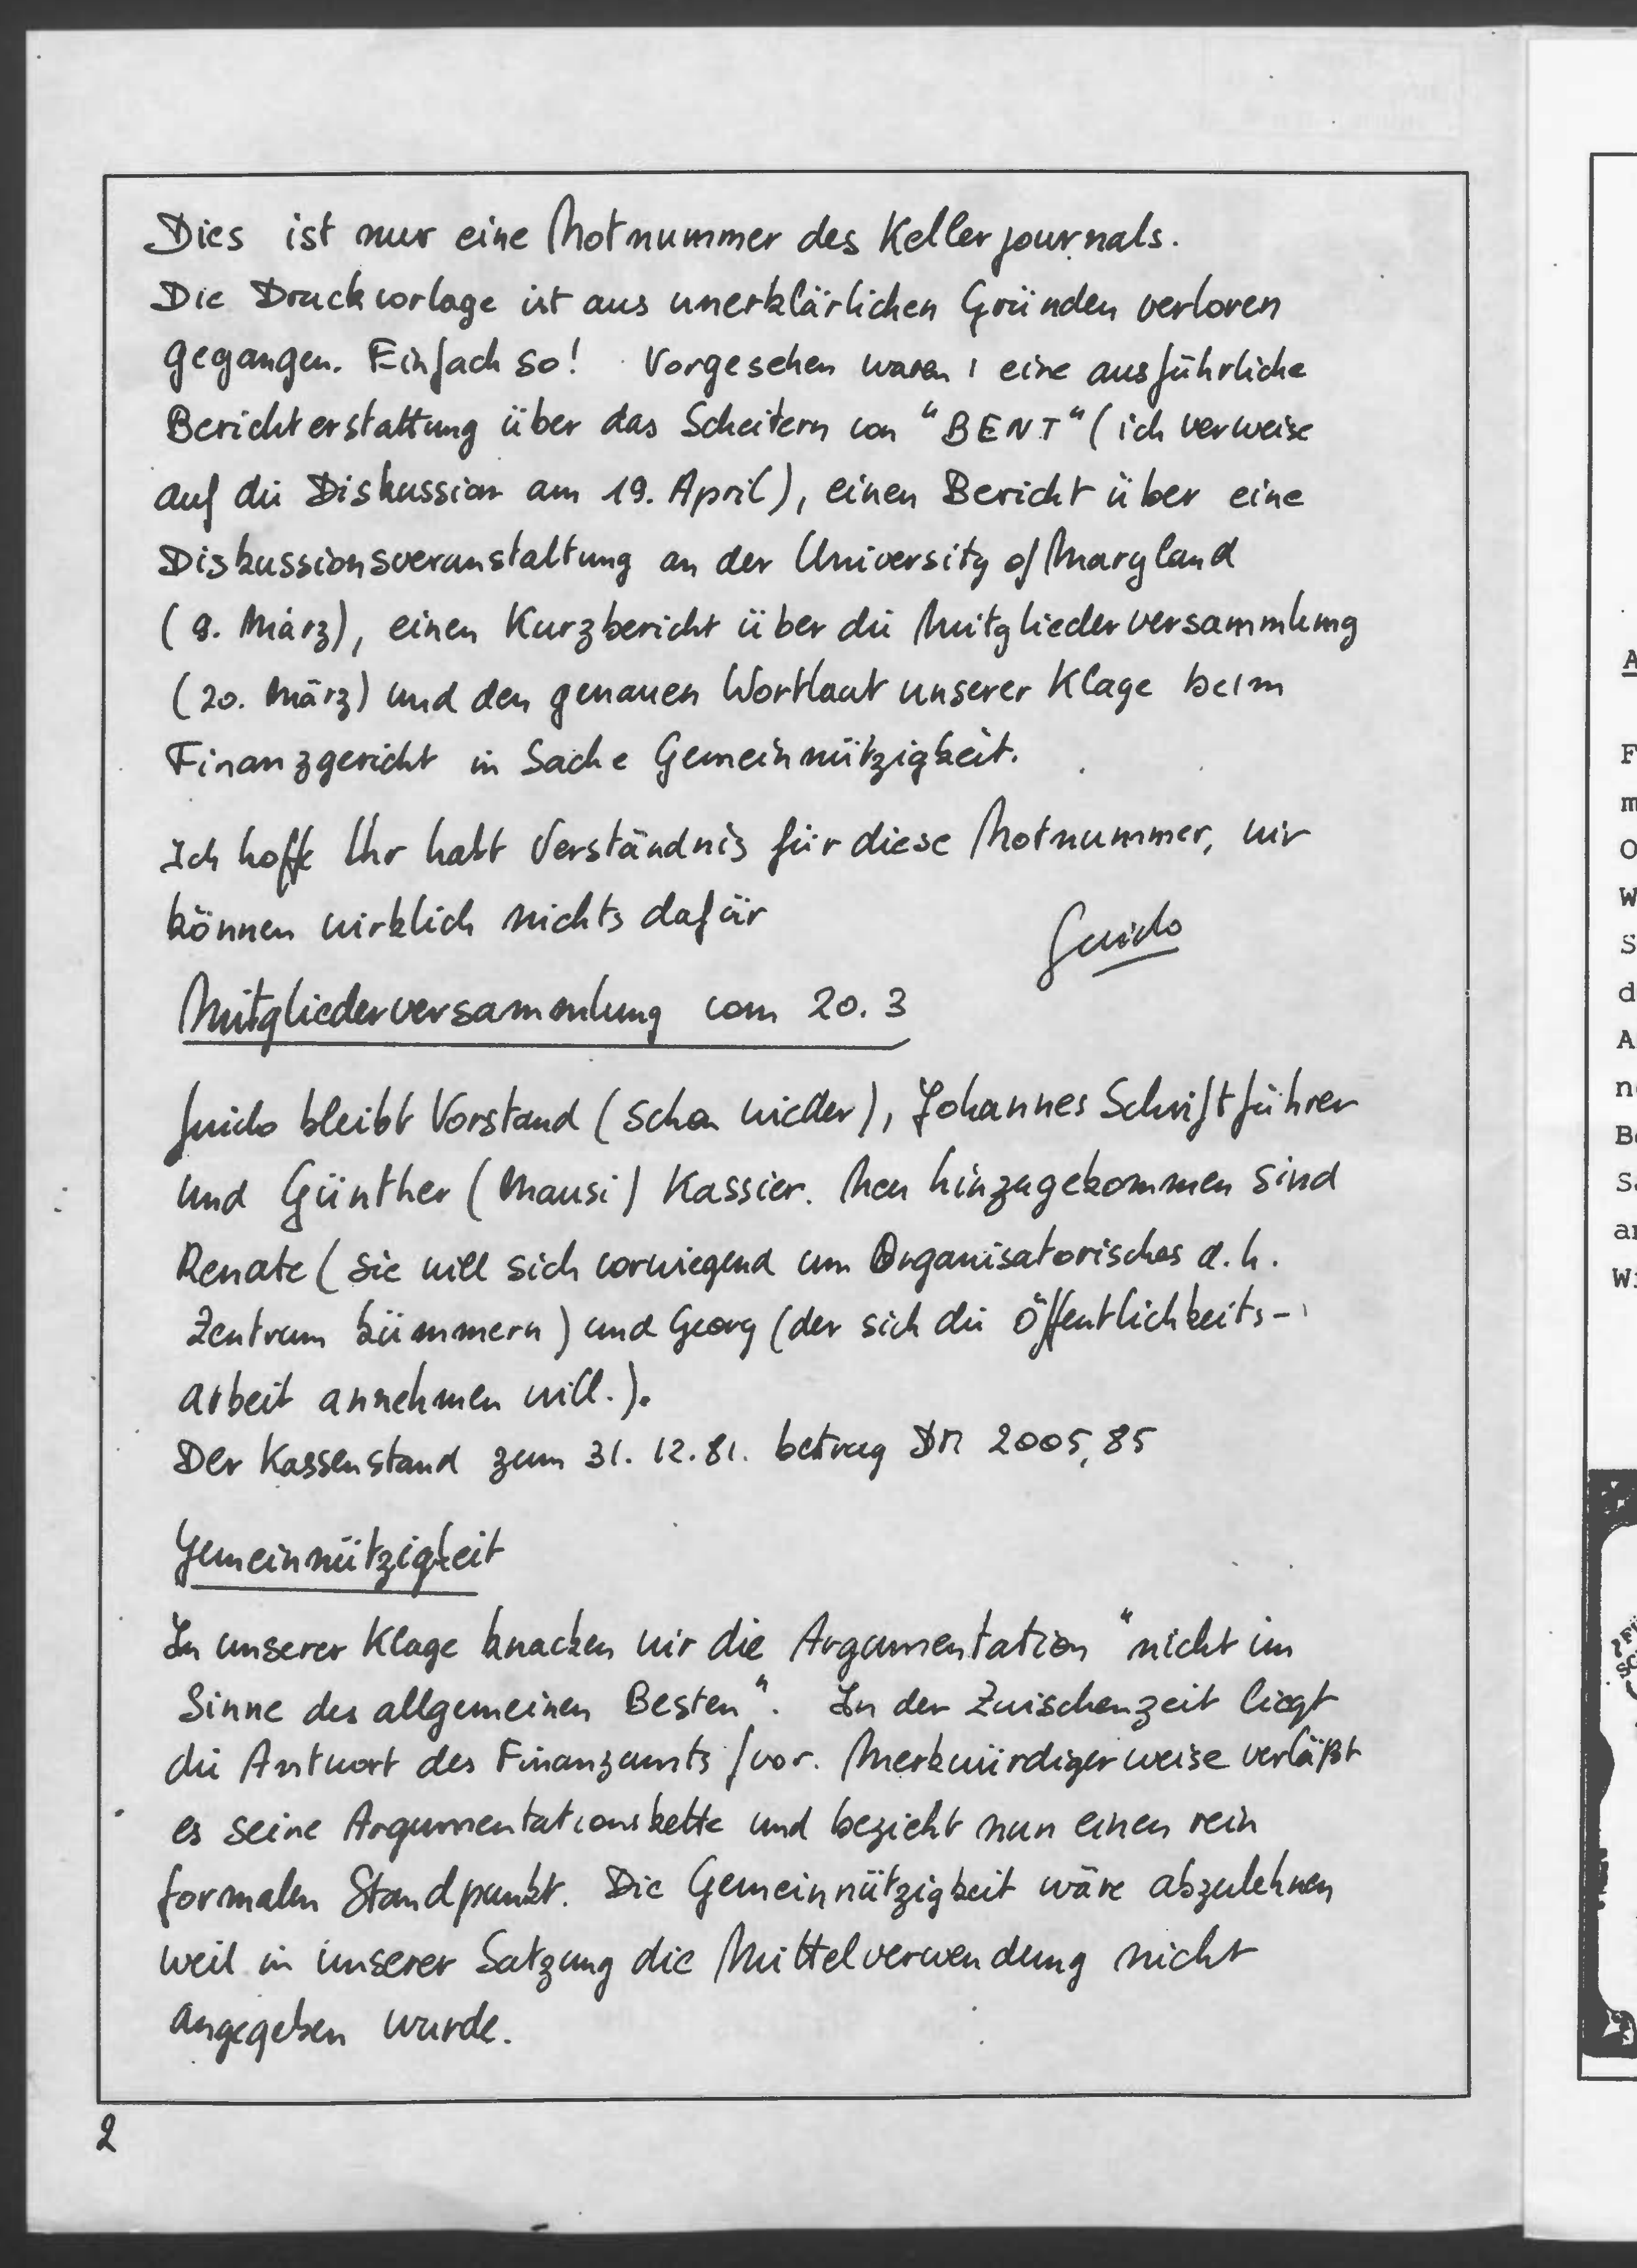 Dies ist nur eine Notnummer des Kellerjournals.
Die Druckvorlage ist aus unerklärlichen Gründen verloren
gegangen. Einfach so! Vorgesehen waren, eine ausführliche
Berichterstattung über das Scheitern von "BENT" (ich verweise
auf die Diskussion am 19. April), einen Bericht über eine
Diskussionsveranstaltung an der University of Maryland
(9. März), einen Kurzbericht über die Mitgliederversammlung
(20. März) und den genauen Wortlaut unserer Klage beim
Finanzgericht in Sache Gemeinnützigkeit.
Ich hoffe Ihr habt Verständnis für diese Notnummer, wir
können wirklich nichts dafür
Guido
Mitgliederversammlung vom 20.3
Guido bleibt Vorstand (schon wieder), Johannes Schriftführer
und Günther (Mausi) Kassier. Neu hinzugekommen sind
Renate (sie will sich vorwiegend um Organisatorisches d.h.
Zentrum kümmern) und Georg (der sich die Öffentlichkeits-
arbeit annehmen will.).
Der Kassenstand zum 31.12.81. betrug DM 2005,85
Gemeinnützigkeit
In unserer Klage knacken wir die Argumentation "nicht im
Sinne des allgemeinen Besten". In der Zwischenzeit liegt
die Antwort des Finanzamts /vor. Merkwürdigerweise verläßt
es seine Argumentationskette und bezieht nun einen rein
formalen Standpunkt. Die Gemeinnützigkeit wäre abzulehnen
weil in unserer Satzung die Mittelverwendung nicht
angegeben wurde.
2